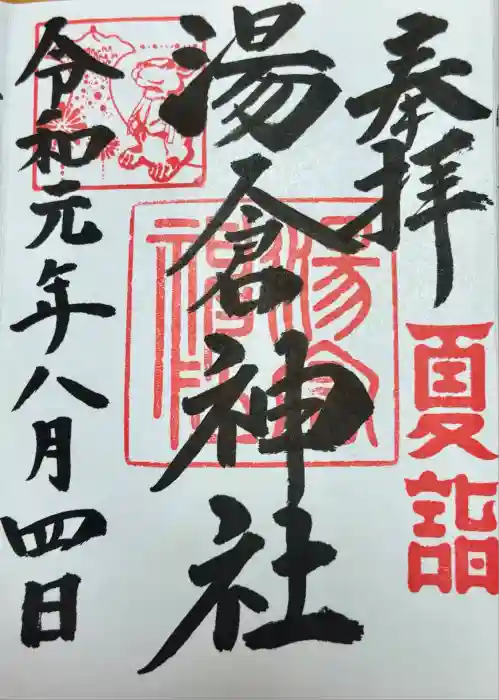 奉拝
夏詣
湯倉神社
湯倉神社
令和元年八月四日